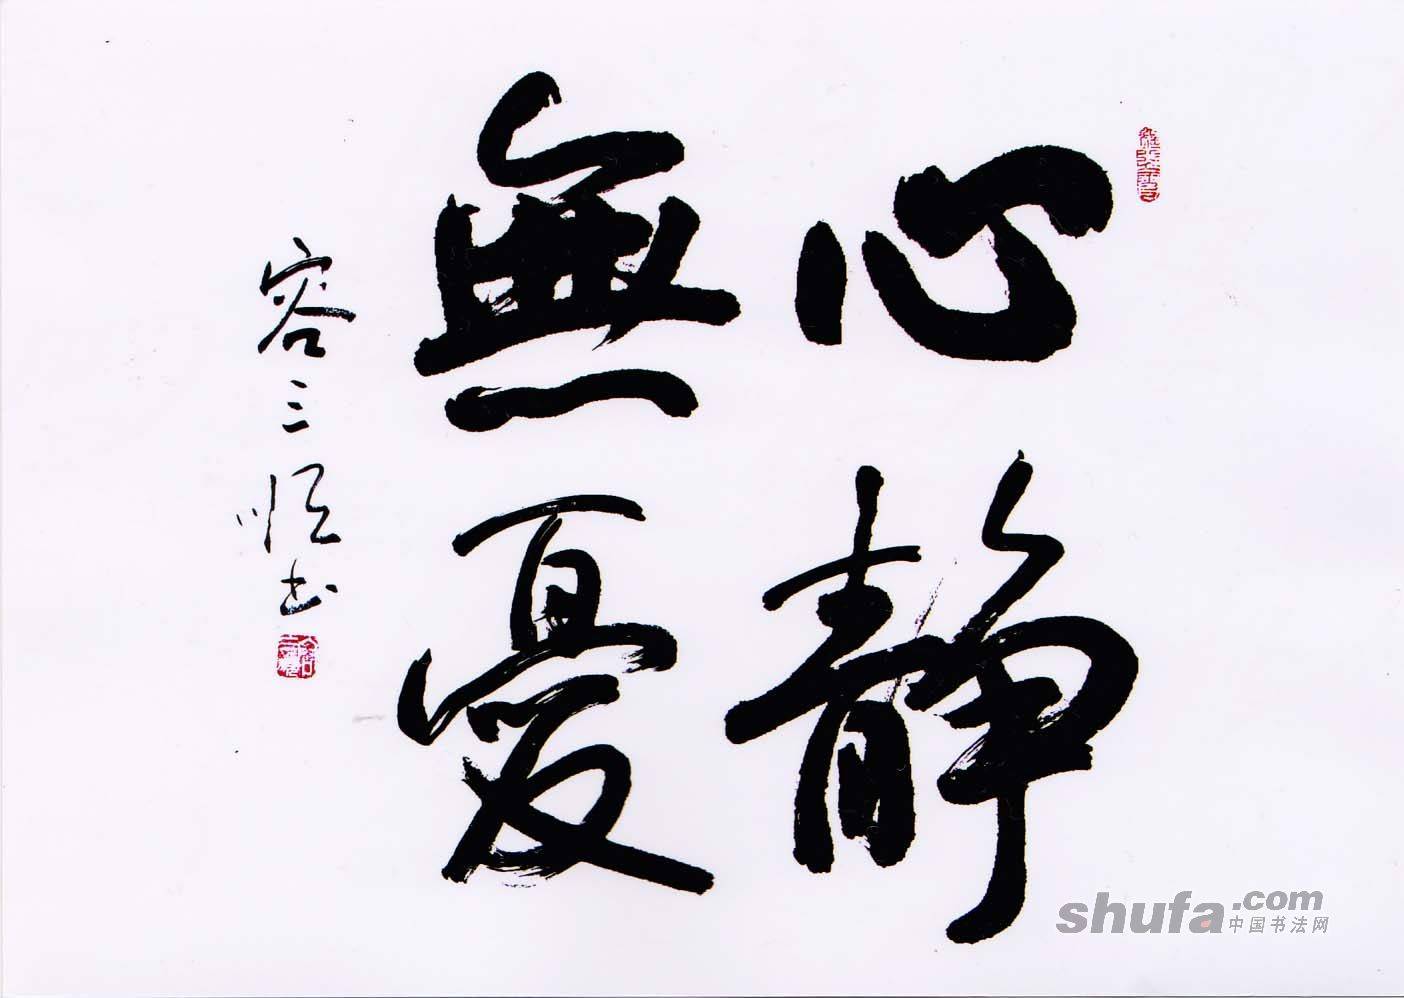 心静
無憂
容三順书
shufa.com
中国书法网